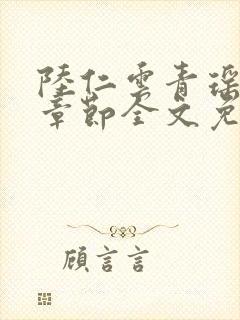 陸仁雲青瑶
章節全文免
顧言言